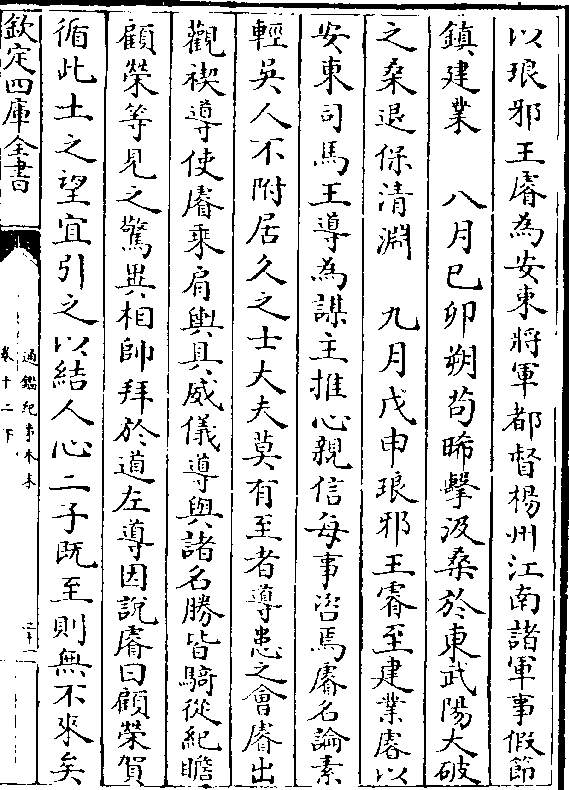 以琅邪王睿為安東將軍都督楊州江南諸軍事假節
鎮建業　八月已卯朔苟晞擊汲桑於東武陽大破
之桑退保清淵　九月戊申琅邪王睿至建業睿以
安東司馬王導為謀主推心親信每事咨焉睿名論素
輕吳人不附居久之士大夫莫有至者導患之會睿出
觀禊導使睿乘肩輿具威儀導與諸名勝皆騎從紀瞻
顧榮等見之驚異相帥拜於道左導因說睿曰顧榮賀
循此土之望宜引之以結人心二子既至則無不來矣
欽定四庫全書
通鑑紀事本末
卷十二下